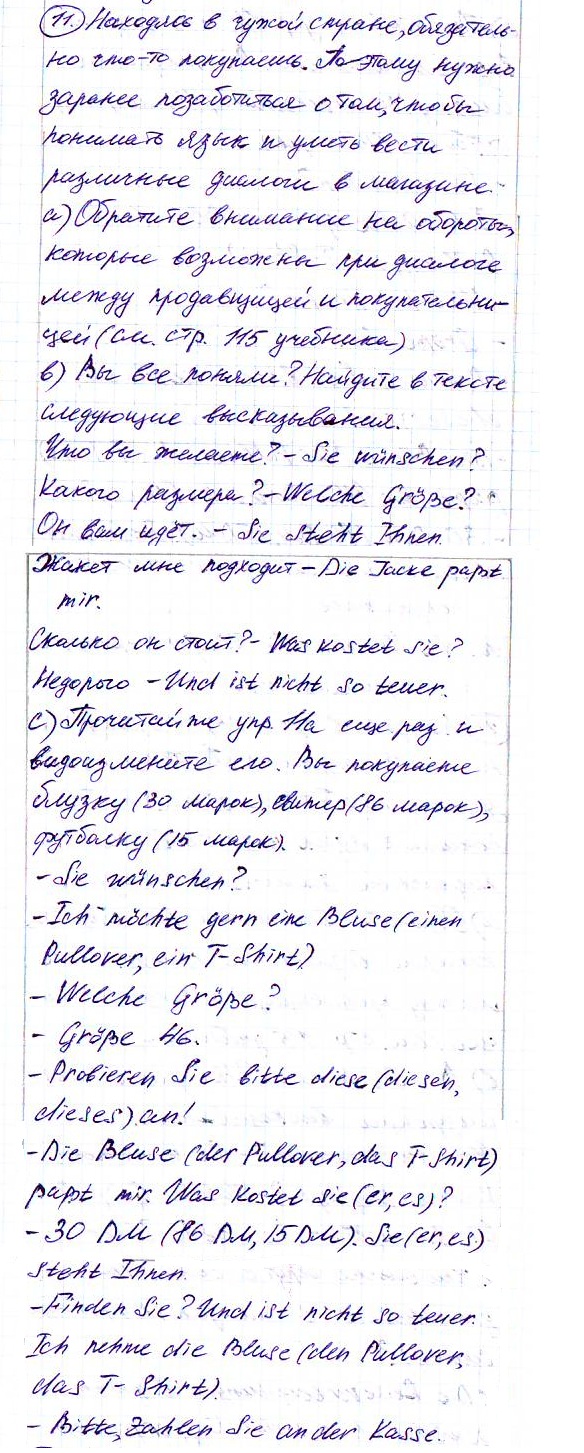 11. Находясь в чужой стране, обязатель-
но что-то покупаешь. Поэтому нужно
заранее позаботиться о том, чтобы
понимать язык и уметь вести
различные диалоги в магазине.
а) Обратите внимание на обороты,
которые возможны при диалоге
между продавщицей и покупательни-
цей (см. стр. 115 учебника)
в) Вы все поняли? Найдите в тексте
следующие высказывания.
Что вы желаете? – Sie wünschen?
Какого размера? – Welche Größe?
Он вам идёт. – Sie steht Ihnen.
Жакет мне подходит – Die Jacke paßt
mir.
Сколько он стоит? – Was kostet sie?
Недорого – Und ist nicht so teuer.
c) Прочитайте упр. 11а еще раз и
видоизмените его. Вы покупаете
блузку (30 марок), свитер (86 марок),
футболку (15 марок).
– Sie wünschen?
– Ich möchte gern eine Bluse (einen
Pullover, ein T-Shirt)
– Welche Größe?
– Größe 46.
– Probieren Sie bitte diese (diesen,
dieses) an!
– Die Bluse (der Pullover, das T-Shirt)
paßt mir. Was kostet sie (er, es)?
– 30 DM (86 DM, 15 DM). Sie (er, es)
steht Ihnen.
– Finden Sie? Und ist nicht so teuer.
Ich nehme die Bluse (den Pullover,
das T-Shirt).
– Bitte, zahlen Sie an der Kasse.